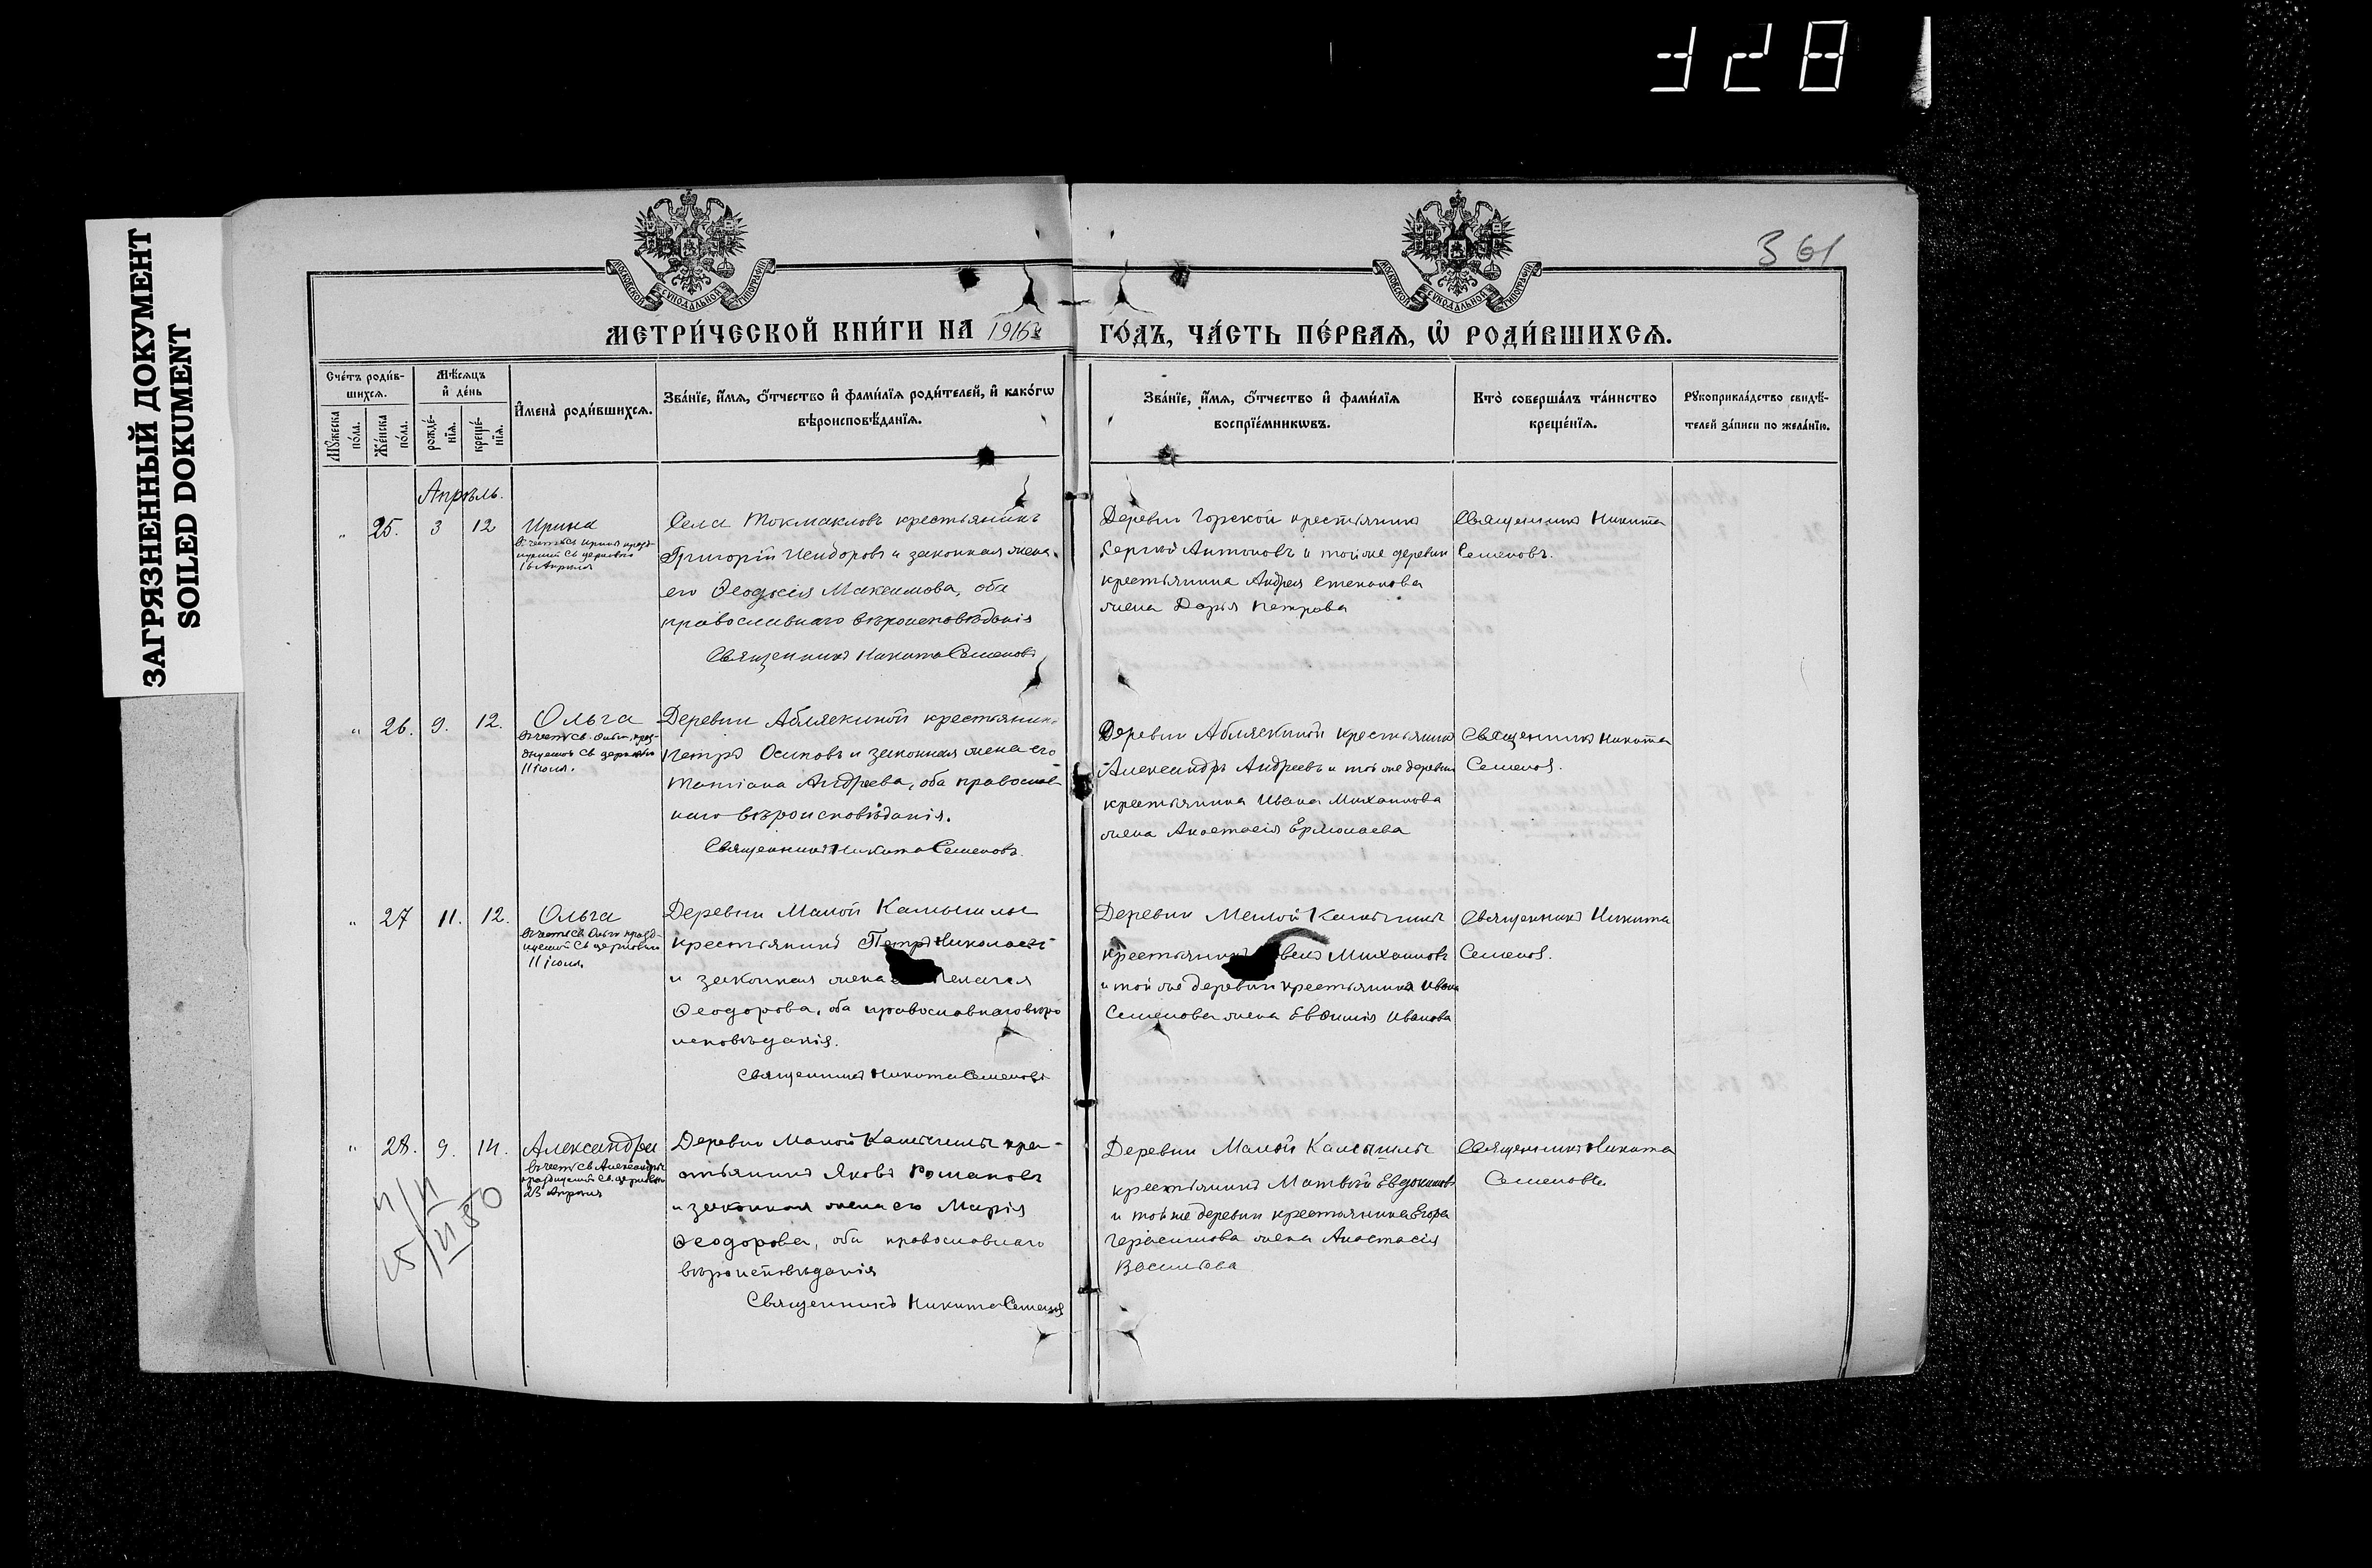 328
ЗАГРЯЗНЕННЫЙ ДОКУМЕНТ
SOILED DOKUMENT
361
МОСКОВСКОЙ СѴНОДАЛЬНОЙ ТИПОГРАФІИ
МОСКОВСКОЙ СѴНОДАЛЬНОЙ ТИПОГРАФІИ
МЕТРИ́ЧЕСКОЙ КНИ́ГИ НА 1916й ГО́ДЪ, ЧА́СТЬ ПЕ́РВАѦ, Ѽ РОДИ́ВШИХСѦ.
Сче́тъ роди́вшихсѧ.
Мꙋ́жеска по́ла.
Же́нска по́ла.
Мѣ́сѧцъ и҆ де́нь
рожде́нїѧ.
креще́нїѧ.
И҆мена̀ роди́вшихсѧ.
Зва́нїе, и҆́мѧ, ѻ҆́тчество и҆ фами́лїѧ роди́телей, и҆ како́гѡ
вѣроисповѣ́данїѧ.
Зва́нїе, и҆́мѧ, ѻ҆́тчество и҆ фами́лїѧ
воспрїе́мникѡвъ.
Кто̀ соверша́лъ та́инство
креще́нїѧ.
Рꙋкоприкла́дство свидѣ́-
телей за́писи по жела́нїю.
Апрѣль.
" 25. 3 12 Ирина
16 Апреля
Села Токмакловъ крестьянинъ
Григорій Исидоровъ и законная жена
его Ѳеодосія Максимова, оба
православнаго вѣроисповѣданія
Священникъ Никита Семеновъ
Деревни Горской крестьянинъ
Сергѣй Антоновъ и той же деревни
крестьянина Андрея Степанова
жена Дарья Петрова
Священникъ Никита
Семеновъ.
" 26. 9. 12. Ольга
въ честь св. Ольги, праз-
днуемой св. церковью
11 іюля.
Деревни Абляскиной крестьянинъ
Петръ Осиповъ и законная жена его
Татіана Андреева, оба православ-
наго вѣроисповѣданія.
Священникъ Никита Семеновъ.
Деревни Абляскиной крестьянинъ
Александръ Андреевъ и той же деревни
крестьянина Ивана Михаилова
жена Анастасія Ермолаева
Священникъ Никита
Семеновъ.
" 27 11. 12. Ольга
въ честь св. Ольги празд-
нуемой св церковью
11 іюля.
Деревни Малой Камышлы
крестьянинъ Петръ Николаевъ
и законная жена Пелагея
Ѳеодорова, оба православнаго вѣро
исповѣданія.
Священникъ Никита Семеновъ
Деревни Малой Камышлы
крестьянинъ Михаиловъ
и той же деревни крестьянина Ивана
Семенова жена Евѳимія Иванова
Священникъ Никита
Семеновъ.
" 28. 9. 14. Александра
въ честь св Александры
празднуемой св. церковью
23 Апреля
Деревни Малой Камышлы кре-
стьянинъ Яковъ Романовъ
и законная жена его Марія
Ѳеодорова, оба православнаго
вѣроисповѣданія
Священникъ Никита Семеновъ
Деревни Малой Камышлы
крестьянинъ Матвѣй Евдокимовъ
и той же деревни крестьянина Егора
Герасимова жена Анастасія
Васильева
Священникъ Никита
Семеновъ